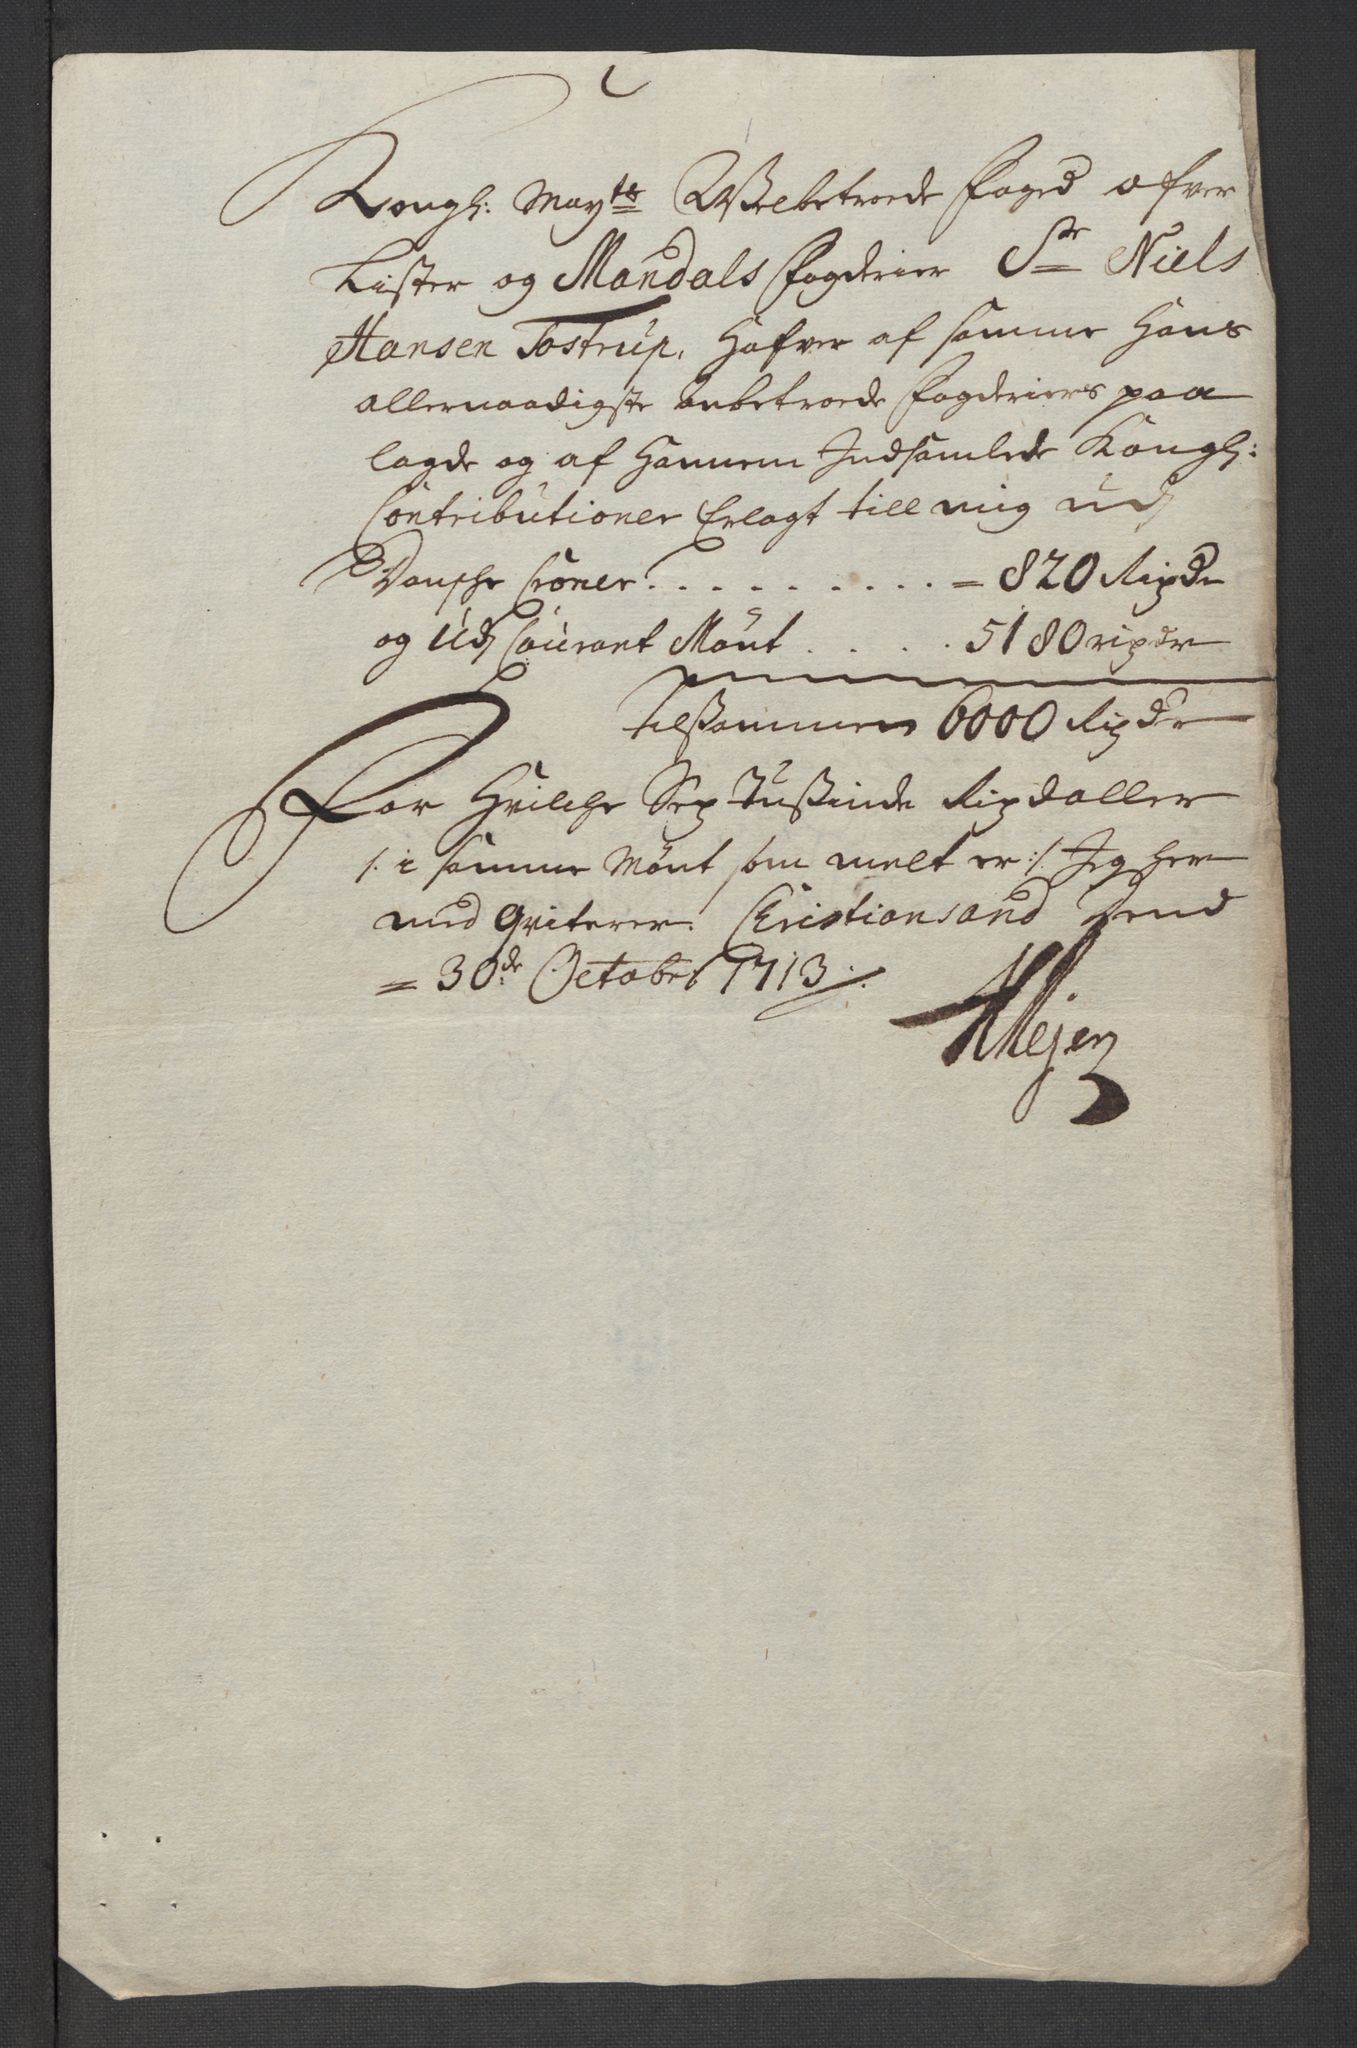 Kongl: Maytz Welbetroede Foged ofver
Lister og Mandals fogderier Sr Niels
Hansen Tostrup, Hafver af samme Hans
allernaadigste anbetroede fogderiers paa
lagde og af Hannem Indsamlede Kongl:
Contributioner Erlagt till mig udj
Danske Croner . . . . . . . . . = 820 Rixdr
og Udj Courant Mønt . . . . . 5180 rixdr
tilsammen 6000 Rixdr
For Hvilche Sex Tusinde Rixdaller
/: i samme Mønt som melt er :/ Jeg her
med Qviterer. Christiansand Dend
= 30de October 1713 ./.